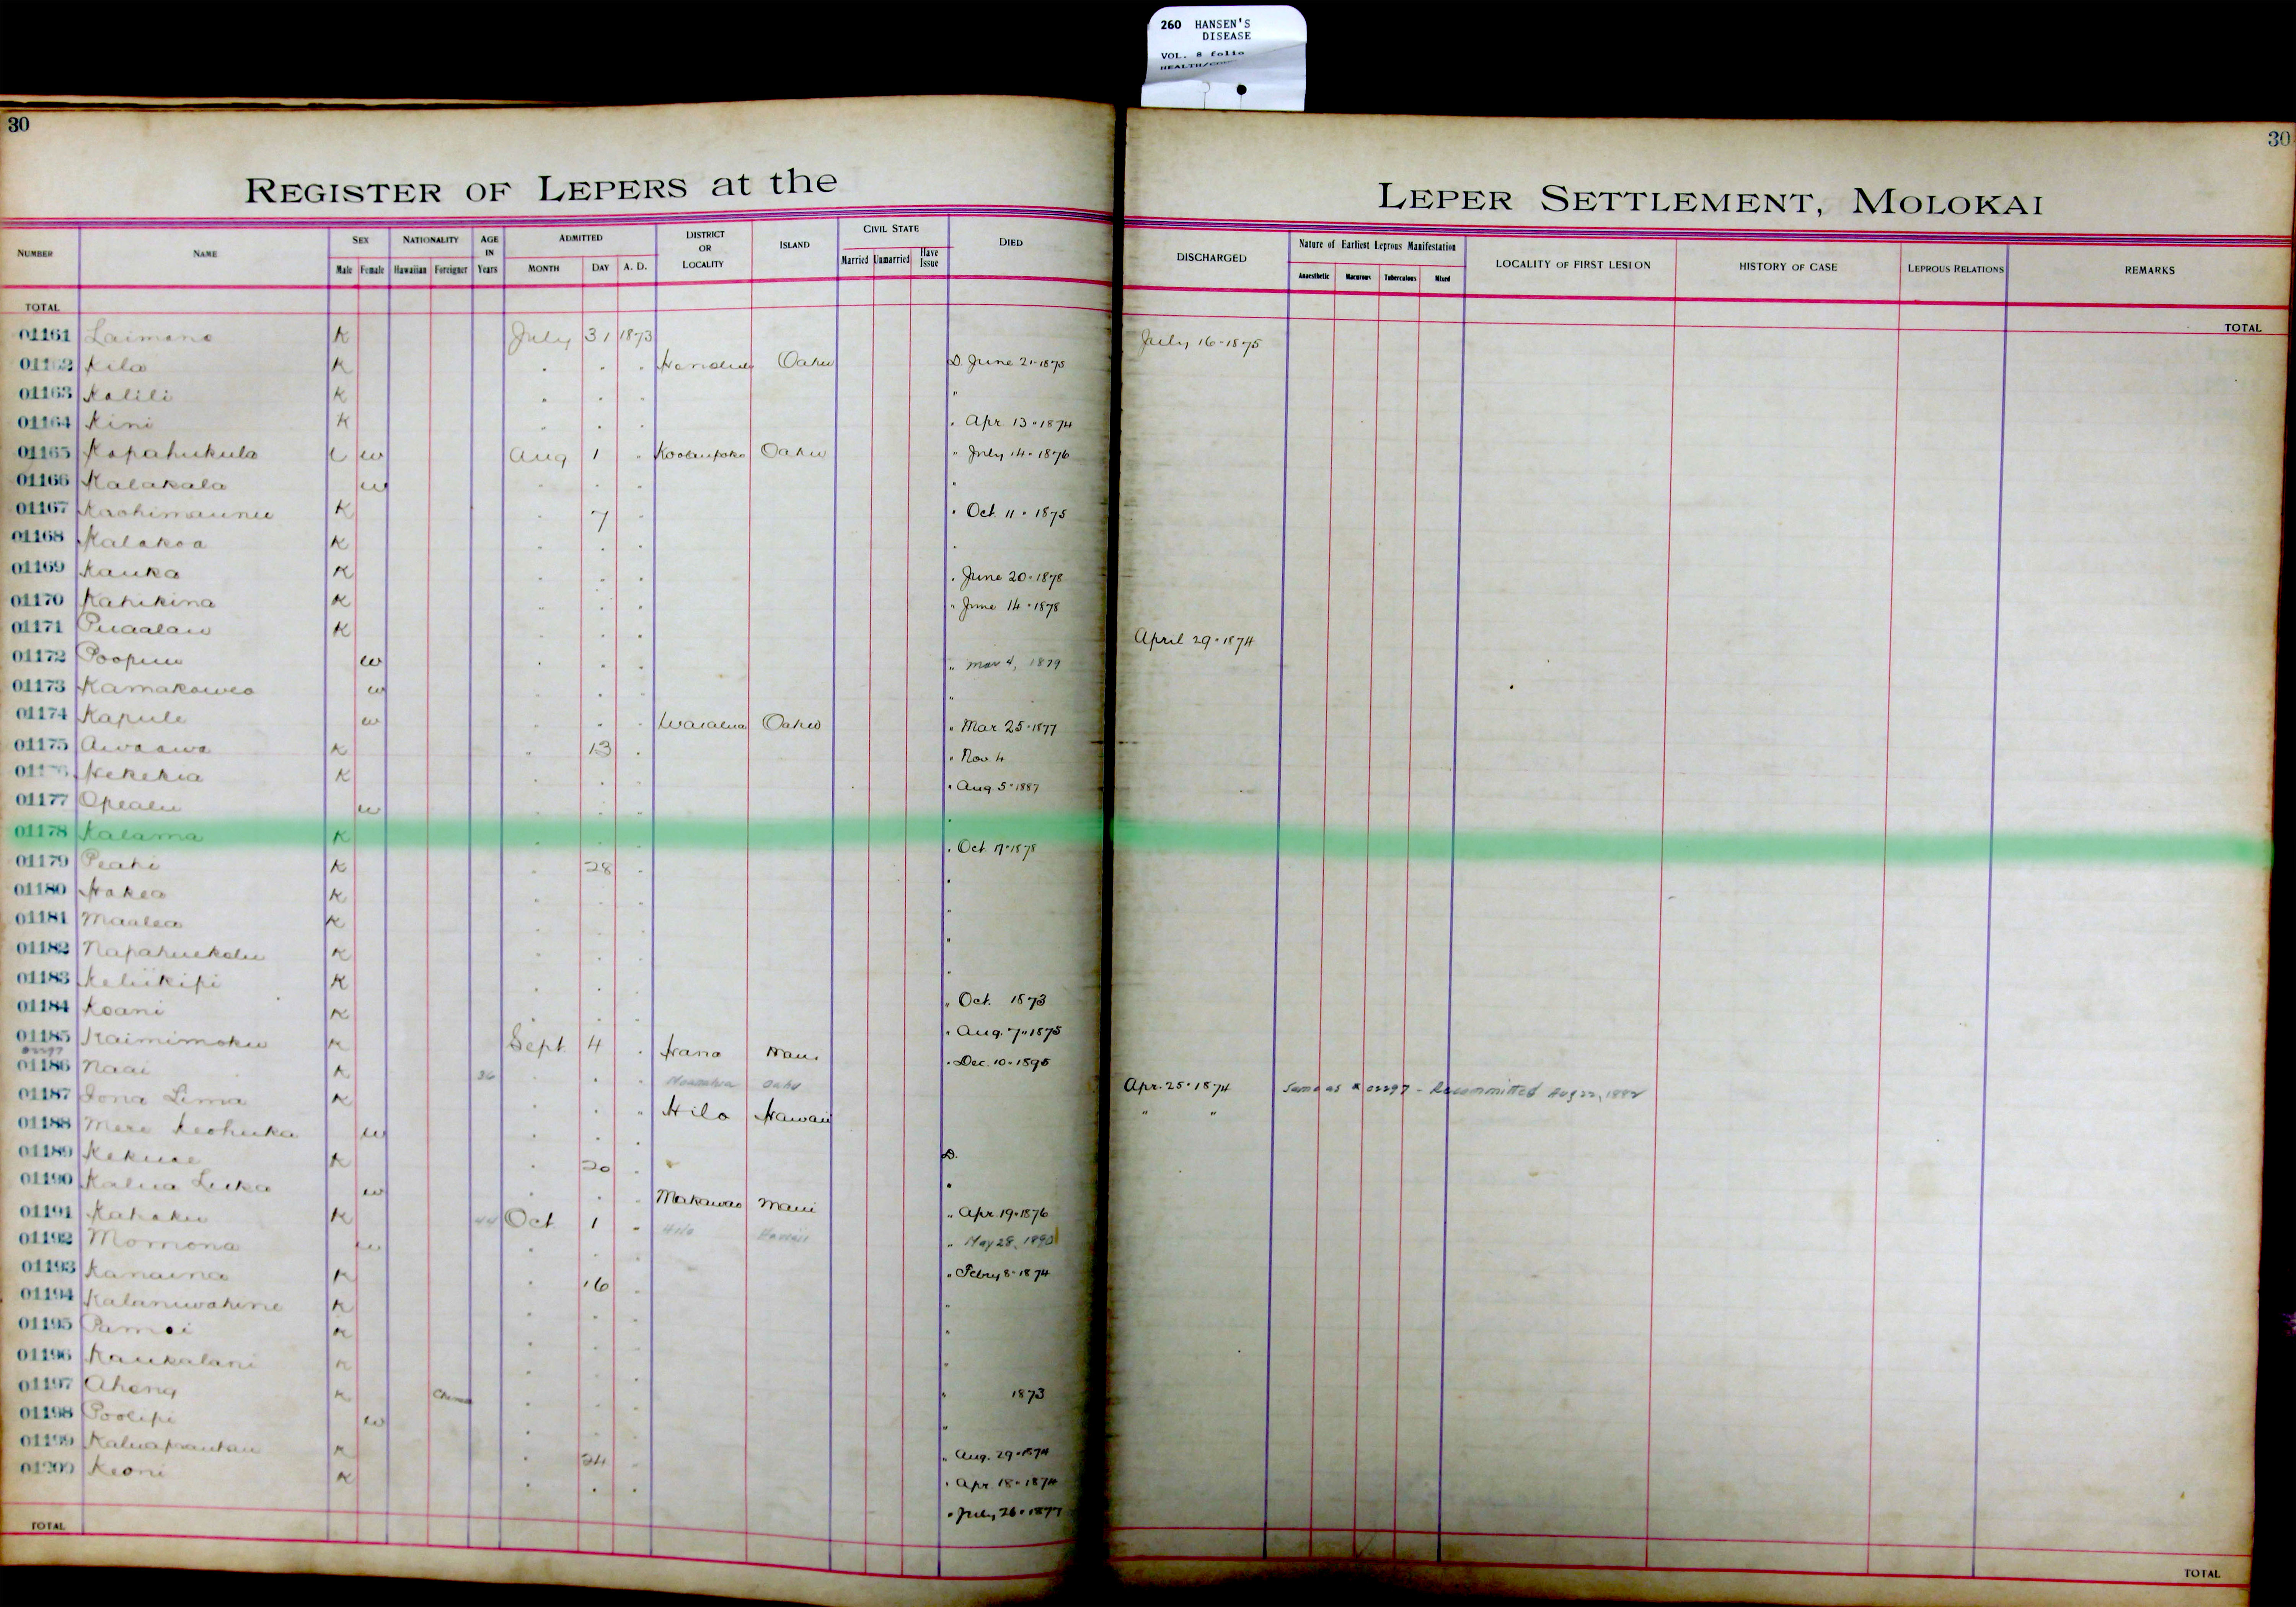 260 HANSEN'S
DISEASE
VOL. 8 folio
30
30
REGISTER OF LEPERS at the
LEPER SETTLEMENT, MOLOKAI
NUMBER NAME SEX NATIONALITY AGE IN Years ADMITTED DISTRICT OR LOCALITY ISLAND CIVIL STATE DIED DISCHARGED Nature of Earliest Leprous Manifestation LOCALITY OF FIRST LESION HISTORY OF CASE LEPROUS RELATIONS REMARKS
Male Female Hawaiian Foreigner MONTH DAY A. D. Married Unmarried Have Issue Anaesthetic Macurous Tuberculous Mixed
TOTAL TOTAL
01161 Laimana K July 31 1873 July 16-1875
Kila K " " " Honolulu Oahu D. June 21-1875
01163 Kalili K " " " "
01164 Kini K " " " " Apr. 13-1874
01165 Kapahukula w Aug 1 " Koolaupoko Oahu " July 14-1876
01166 Kalakala w " " " "
01167 Kaohimaunu K " 7 " " Oct. 11-1875
01168 Kalakoa K " " " "
01169 Kauka K " " " " June 20-1878
01170 Kahikina K " " " " June 14-1878
01171 Puaalau K " " " April 29-1874
01172 Poopuu w " " " " Mar 4, 1879
01173 Kamakawea w " " " "
01174 Kapule w " " " Waialua Oahu " Mar. 25-1877
01175 Awaawa K " 13 " " Nov. 4
Hekekia K " " " " Aug 5-1887
01177 Opealu w " " " "
01178 Kalama K " " " " Oct. 17-1878
01179 Peahi K " 28 " "
01180 Hakea K " " " "
01181 Maalea K " " " "
01182 Napahuekolu K " " " "
01183 Keliikipi K " " " " Oct. 1873
01184 Koani K " " " " Aug. 7-1875
01185 Kaimimoku K Sept. 4 " Hana Maui " Dec. 10-1895
01186 Naai K 36 " " " Oahu Apr. 25-1874 Same as # 02297 - Recommitted Aug 22, 1882
01187 Iona Lima K " " " Hilo Hawaii " "
01188 Mere Keohuka w " " " D.
01189 Kekuae K " 20 " "
01190 Kalua Luka w " " " Makawao Maui " Apr. 19-1876
01191 Kahaku K 44 Oct 1 " Hilo Hawaii " May 28, 1890
01192 Momona w " " " " Febry 8-1874
01193 Kanaina K " 16 " "
01194 Kalaniwahine K " " " "
01195 K " " " "
01196 Kaukalani K " " " " 1873
01197 Ahong K " " " "
01198 Poolipi w " " " " Aug. 29-1874
01199 K " 24 " " Apr. 18-1874
01200 Keoni K " " " " July 26-1877
TOTAL TOTAL